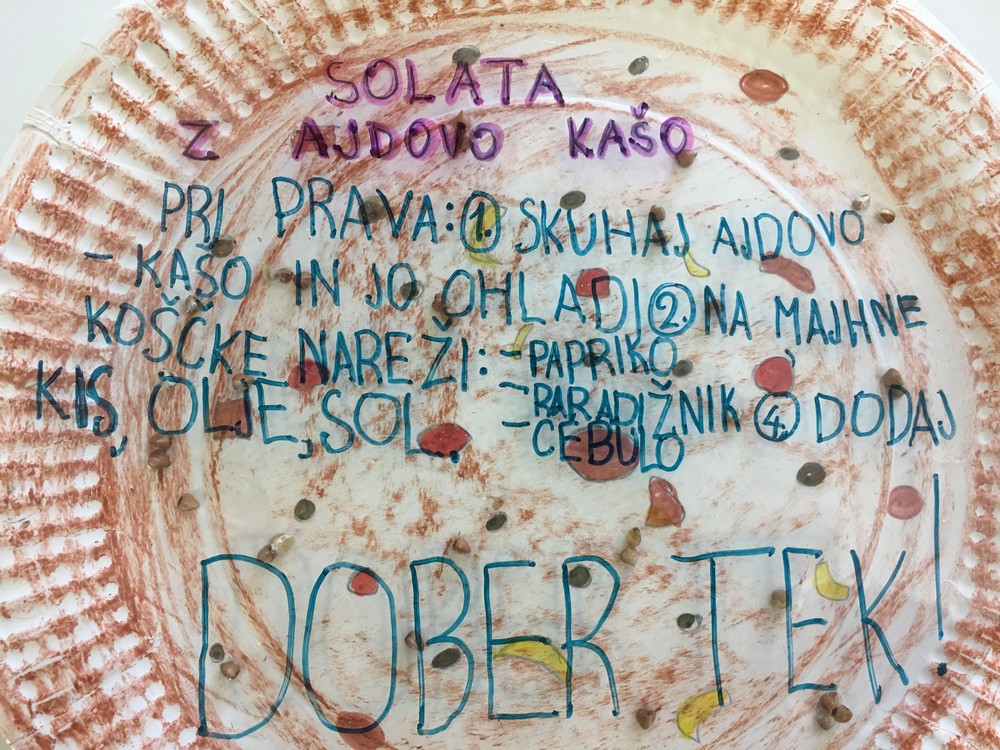 SOLATA
Z AJDOVO KAŠO
PRI PRAVA: 1. SKUHAJ AJDOVO
- KAŠO IN JO OHLADI 2. NA MAJHNE
KOŠČKE NAREŽI: - PAPRIKO
- PARADIŽNIK 4. DODAJ
- CEBULO
KIS, OLJE, SOL.
DOBER TEK!